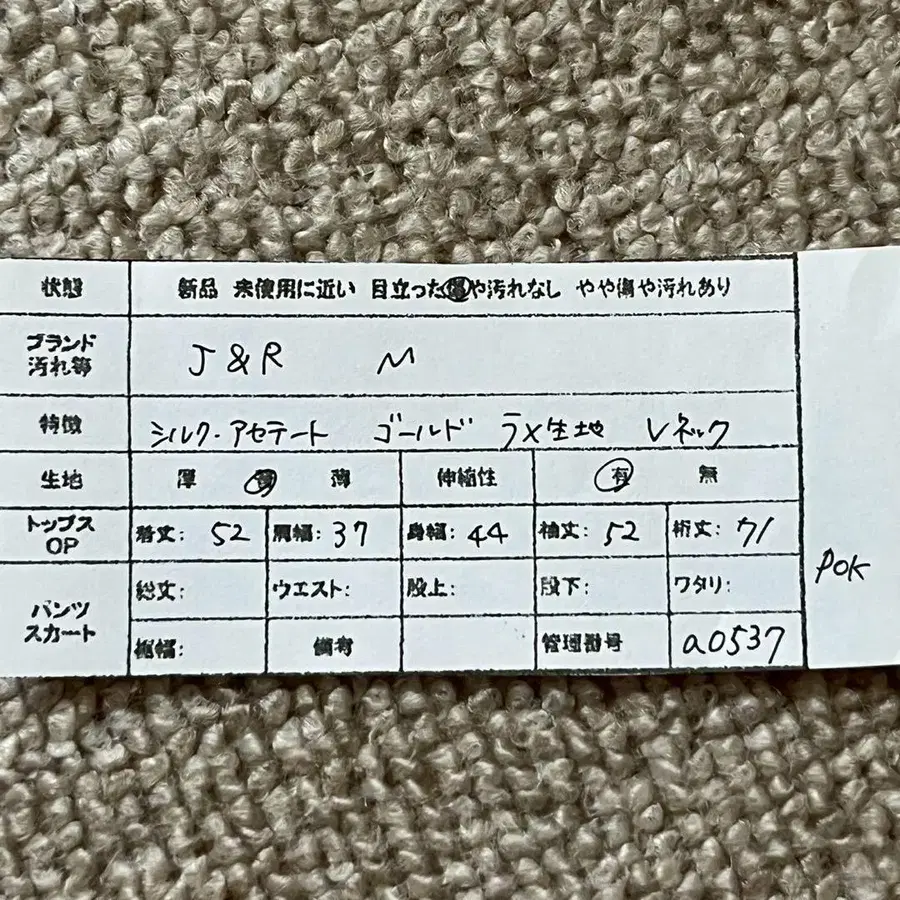 状態 新品 未使用に近い 目立った傷や汚れなし やや傷や汚れあり
ブランド
汚れ等 J&R M
特徴 シルク・アセテート ゴールド ラメ生地 Vネック
生地 厚 普 薄 伸縮性 有 無
トップス
OP 着丈: 52 肩幅: 37 身幅: 44 袖丈: 52 裄丈: 71
パンツ
スカート 総丈: ウエスト: 股上: 股下: ワタリ:
裾幅: 備考 管理番号 a0537
POK